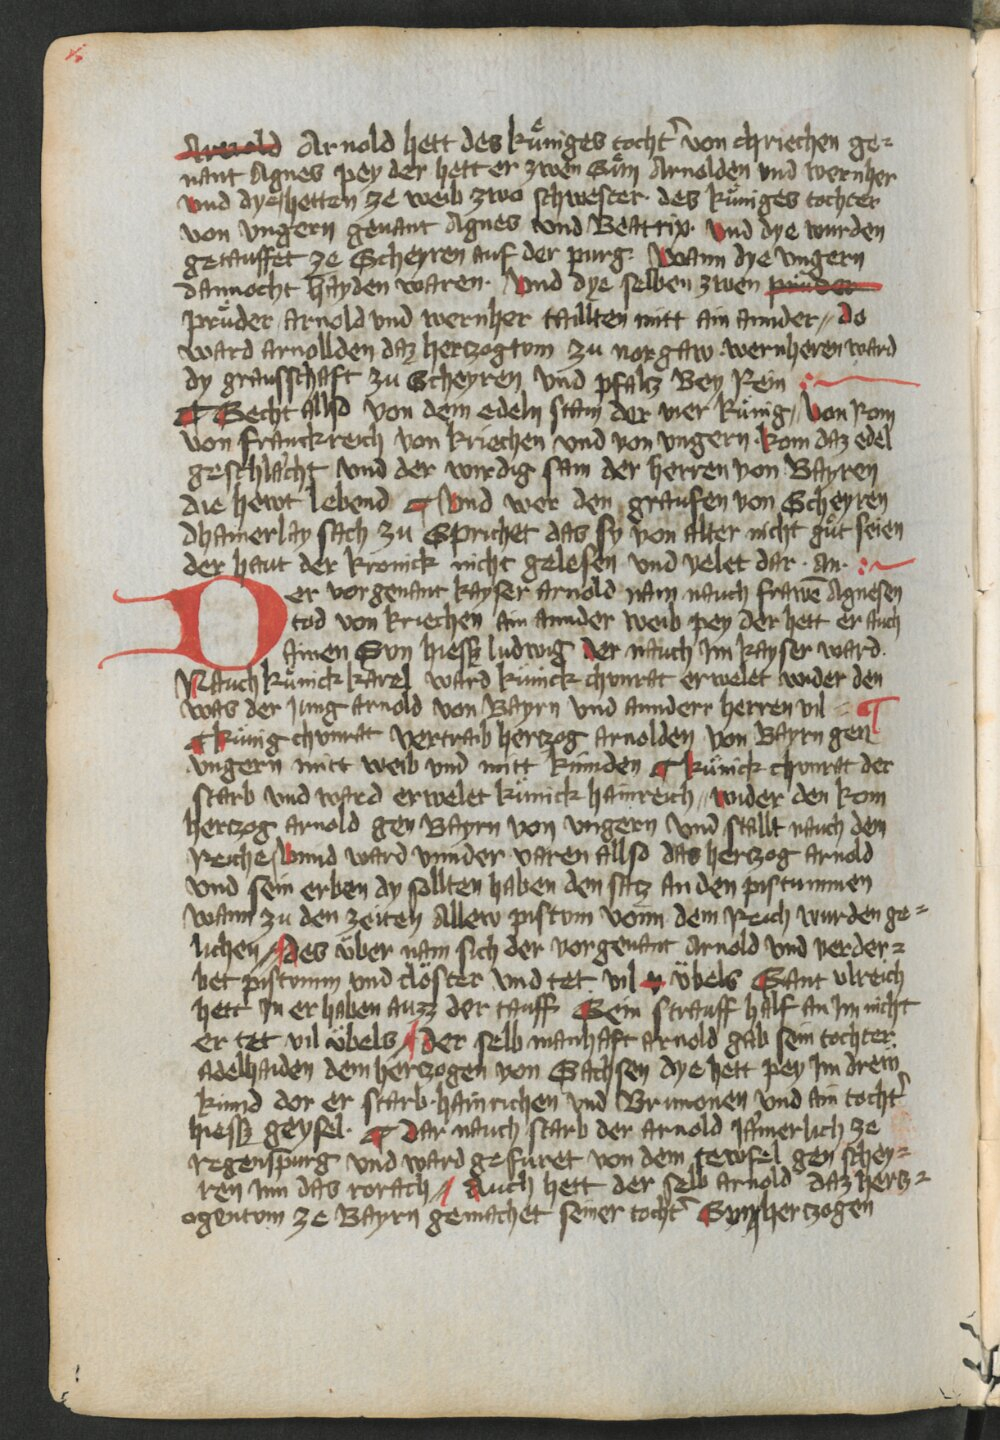 Arnold Arnold hett des kuͤniges tocht̉ von chriechen ge⸗
nant Agnes pey der hett er zwen Suͤn Arnolden vnd wernher
vnd dye hetten ze weib zwo schwester des kuͤniges tochter
von vngern genant Agnes vnd Beatrix. vnd dye wurden
getauffet ze Scheyren auf der purg. Wann dye vngern
dannocht hayden waren. Vnd dye selben zwen pruder
pruͤder arnold vnd wernher taillten mitt ain annder // do
ward arnollden daz hertzogtom zu norgaw. wernheren ward
dy grausschaft zu Scheyren vnd pfaltz Bey Rein
¶ Secht allso von dem edeln stam der vier kunig // Von Rom
von franckreich von kriechen vnd von vngern. kom daz edel
geschlaͤcht vnd der wirdig sam der herren von Bayren
die hewt lebend ¶ Vnd wer den graufen von Scheyren
dhainerlay sach zu Sprichet das sy von alter nicht guͤt seien
der haut der kronick nicht gelesen vnd velet dar. an.
Der vorgenant kayser arnold nam nauch frawē Agnesen
tod von kriechen ain annder weib pey der hett er auch
ainen Sun hiess ludwig der nauch im kayser ward.
Nauch kuͤnick karel ward kunick chunrat erwelet wider den
was der jung arnold von Bayrn vnd annderr herren vil ¶
¶ kunig chunrat vertraib hertzog arnolden von Bayrn gen
vngern mitt weib vnd mitt kinnden ¶ kunick chunrat der
starb vnd ward erwelet kunick hainreich // wider den kom
hertzog arnold gen Bayrn von vngern vnd stallt nauch dem
Reiche / Vnnd ward vnnder varen allso das hertzog arnold
vnd sein erben dy sollten haben den satz an den pistummen
wann zu den zeiten allew pistom vonn dem Reich wurden ge⸗
lichen / des uͤber nam sich der vorgenant arnold vnd verder⸗
bet pistomm vnd cloͤster vnd tet vil v uͤbels Sant vlreich
hett in er haben auzz der tauff Sein strauff half an im nicht
er tet vil uͤbels / der selb manhaft arnold gab sein tochter
adelhaiden dem hertzogen von Sachsen dye hett pey im drew
kinnd dor er starb. hainrichen vnd Brunonen vnd ain tocht̉
hiess geysel. ¶ Dar nauch starb der arnold jaͤmerlich ze
regenspurg vnd ward gefuret von dem tewfel gen schey⸗
ren inn das rorach / Auch hett der selb arnold daz hertz⸗
ogentom ze Bayrn gemachet seiner tocht̉ Sun hertzogen